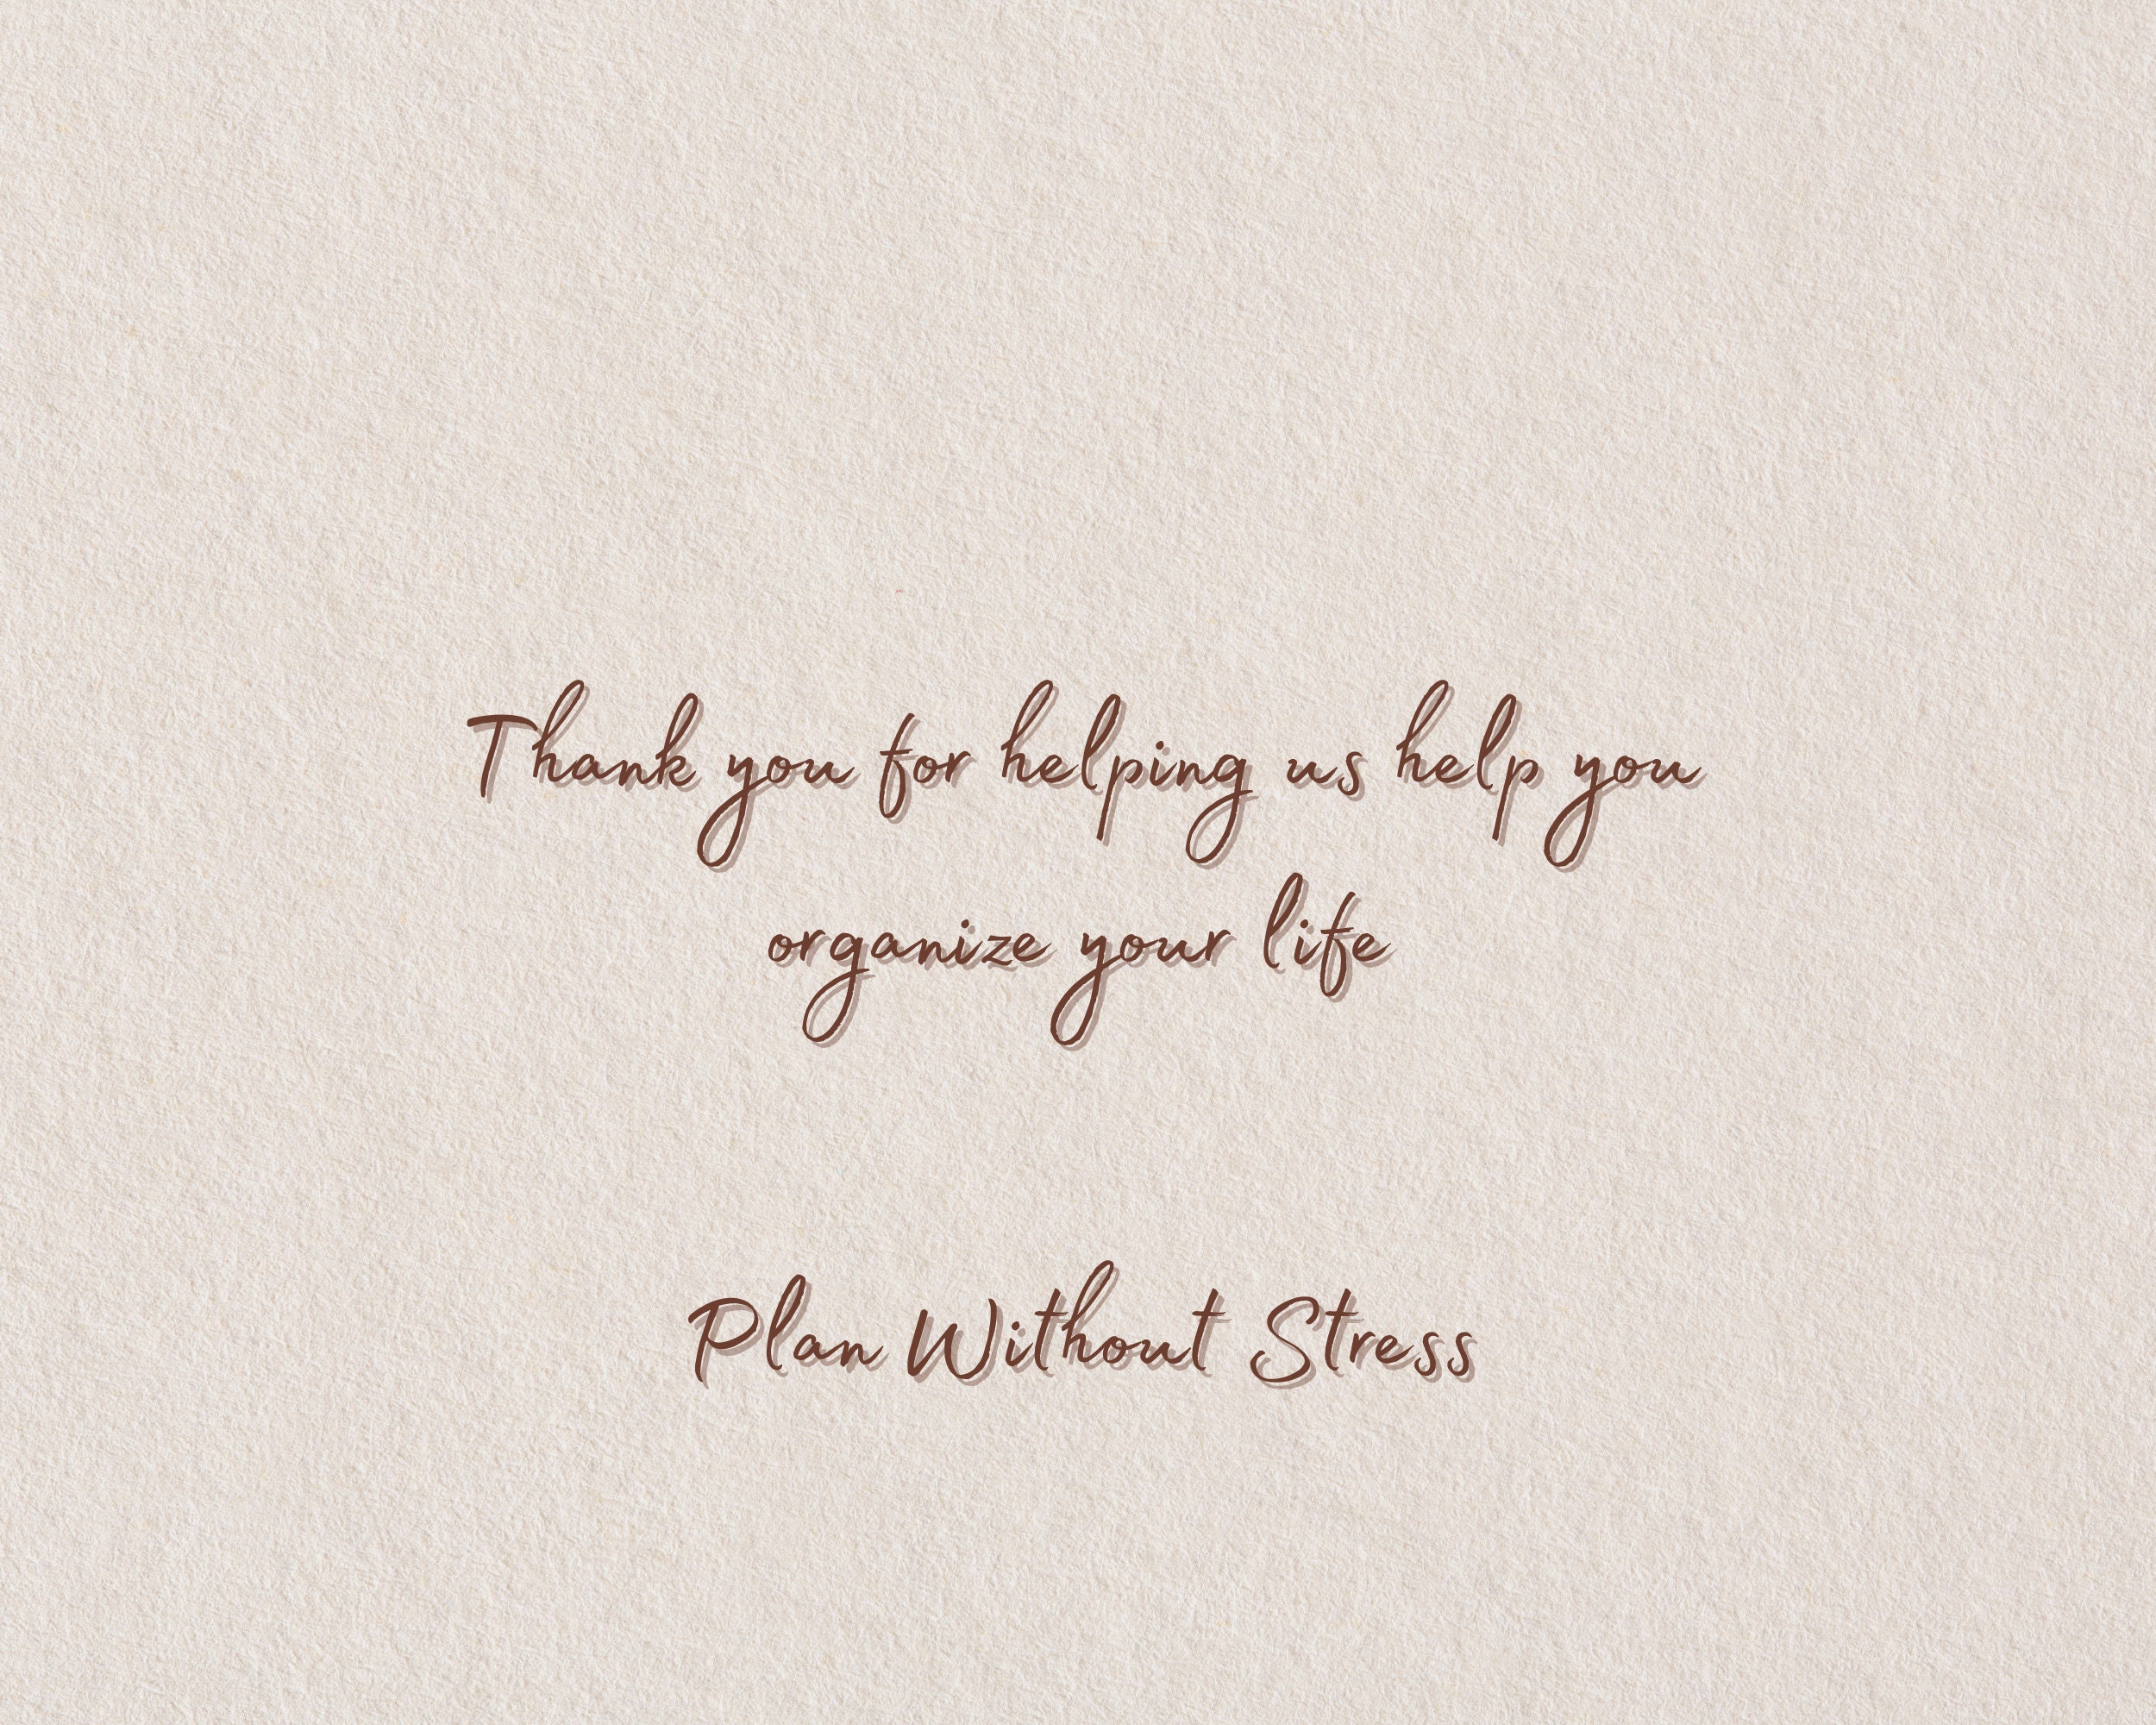 Thank you for helping us help you
organize your life
Plan Without Stress